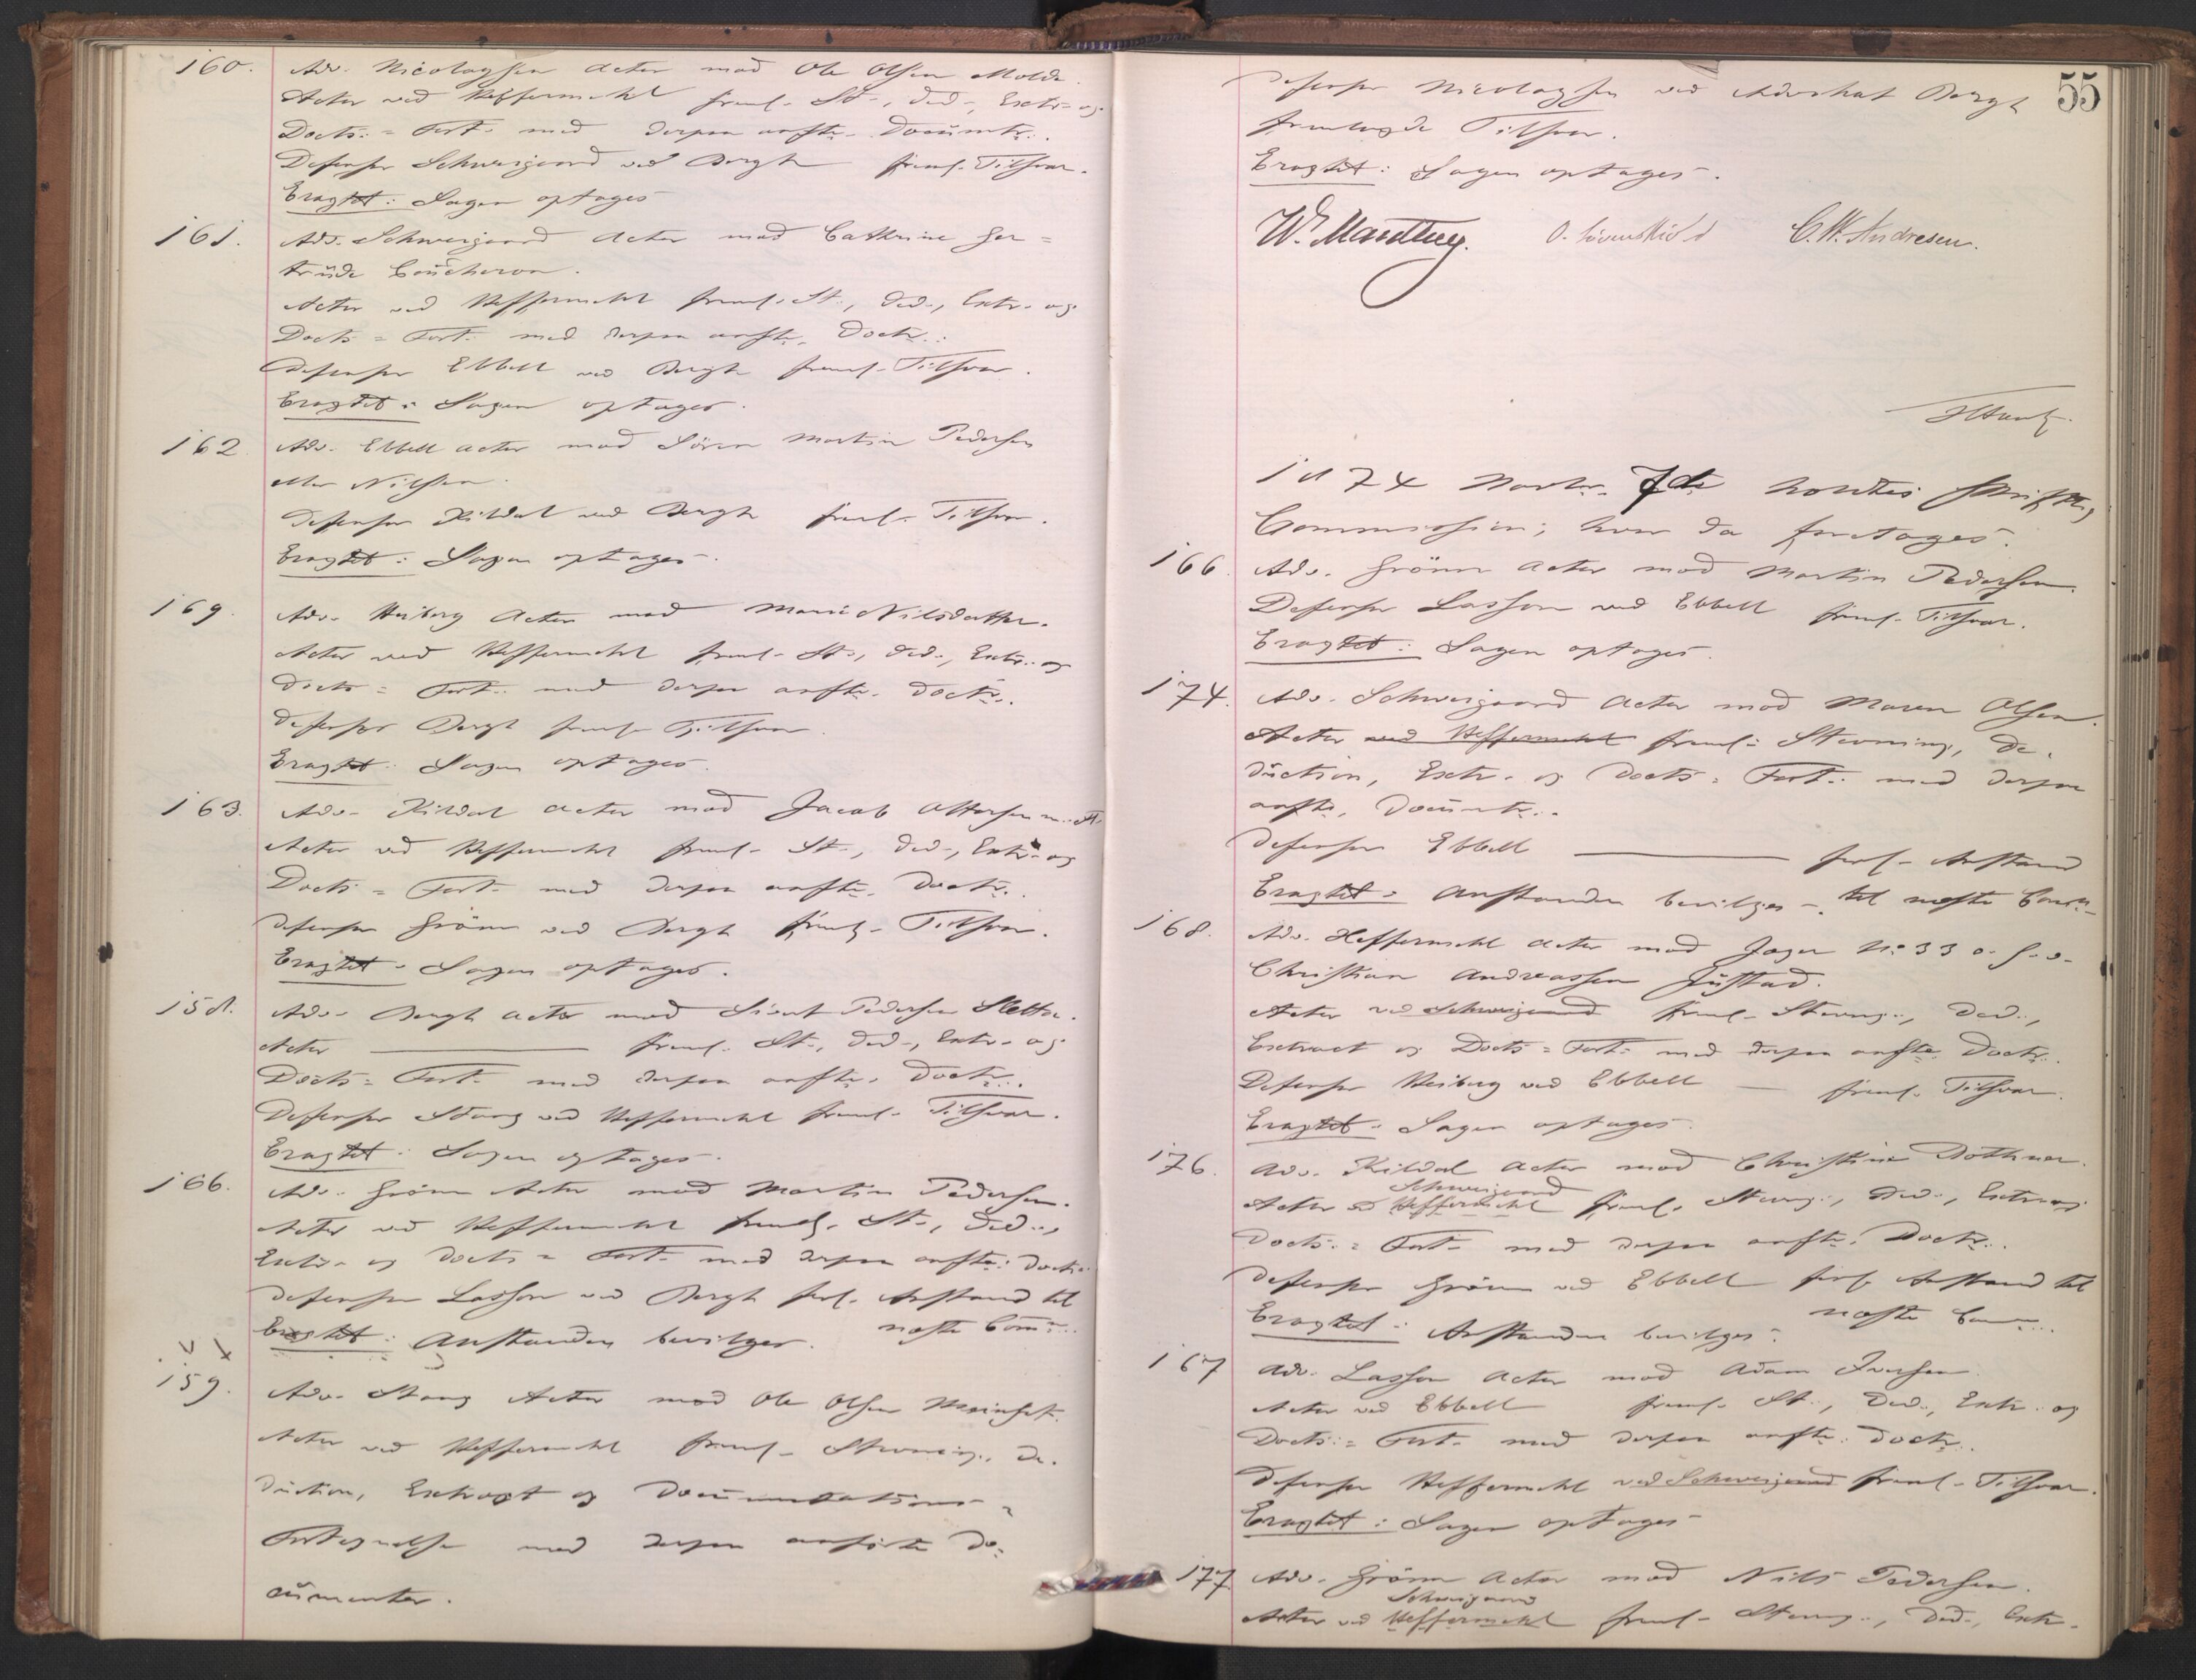 160. Adv. Nicolaysen Actor mod Ole Olsen Molde.
Actor ved Heffermehl freml. St., Ded., Extr. og
Docts.= Fort. med derpaa anfte. Documtr.
Defensor Schweigaard ved Bergh freml. Tilsvar.
Eragtet: Sagen optages
161. Adv. Schweigaard Actor mod Cathrine Ger=
trüde Coücheron.
Actor ved Heffermehl freml. St., Ded., Extr. og
Docts = Fort. med derpaa anfte. Doctr.
Defensor Ebbell ved Bergh freml. Tilsvar.
Eragtet: Sagen optages.
162. Adv. Ebbell Actor mod Sören Martin Pedersen
eller Nilsen.
Defensor Kildal ved Bergh freml. Tilsvar.
Eragtet: Sagen optages.
169. Adv. Heiberg Actor mod Marie Nilsdatter.
Actor ved Heffermehl freml. St., Ded., Extr. og
Docts = Fort. med derpaa anfte. Doctr.
Defensor Bergh freml. Tilsvar.
Eragtet: Sagen optages.
163. Adv. Kildal Actor mod Jacob Attorsen m. fl.
Actor ved Heffermehl freml. St., Ded., Extr. og
Docts = Fort. med derpaa anfte. Doctr.
Defensor Grönn ved Bergh freml. Tilsvar.
Eragtet: Sagen optages.
158. Adv. Bergh Actor mod Sivert Pedersen Sletten.
Actor ——— freml. St., Ded., Extr. og
Docts = Fort. med derpaa anfte. Doctr.
Defensor Stang ved Heffermehl freml. Tilsvar.
Eragtet: Sagen optages.
166. Adv. Grönn Actor mod Martin Pedersen.
Actor ved Heffermehl freml. St., Ded.,
Extr. og Docts = Fort. med derpaa anfte. Doctr.
Defensor Lasson ved Bergh forl. Anstand til
Eragtet: Anstanden bevilges. næste Comm.
159. Adv. Stang Actor mod Ole Olsen
Actor ved Heffermehl freml. Stevning, De-
düction, Extract og Documentations=
Fortegnelse med derpaa anförte Do=
cümenter.
55
Defensor Nicolaysen ved Advokat Bergh
fremlagde Tilsvar.
Eragtet: Sagen optages.
W. Mandtey. O. Lövenskiold C. W. Andresen.
1874 Marts 7de holdtes skriftlig
Commission; hvor da foretages.
166. Adv. Grönn Actor mod Martin Pedersen.
Defensor Lasson ved Ebbell freml. Tilsvar.
Eragtet: Sagen optages.
174. Adv. Schweigaard Actor mod Maren Olsen.
Actor ved Heffermehl freml. Stevning, De-
düction, Extr. og Docts = Fort. med derpaa
anfte. Documtr.
Defensor Ebbell ——— forl. Anstand
Eragtet: Anstanden bevilges til næste Comm.
168. Adv. Heffermehl Actor mod Jager No 33 o. s. v.
Christian Andreassen Jüstad.
Actor ved Schweigaard freml. Stevng., Ded.,
Extract og Docts = Fort. med derpaa anfte. Doctr.
Defensor Heiberg ved Ebbell — freml. Tilsvar.
Eragtet: Sagen optages.
176. Adv. Kildal Actor mod Christine
Schweigaard
Actor ved Heffermehl freml. Stevng., Ded., Extr. og
Docts. = Fort. med derpaa anfte. Doctr.
Defensor Grönn ved Ebbell forl. Anstand til
Eragtet: Anstanden bevilges. næste Comm.
167 Adv. Lasson Actor mod Adam Iversen.
Actor ved Ebbell freml. St., Ded., Extr. og
Docts. = Fort. med derpaa anfte. Doctr.
Defensor Heffermehl ved Schweigaard freml. Tilsvar.
Eragtet: Sagen optages
177. Adv. Grönn Actor mod Nils Pedersen.
Schweigaard
Actor ved Heffermehl freml. Stevng., Ded., Extr.